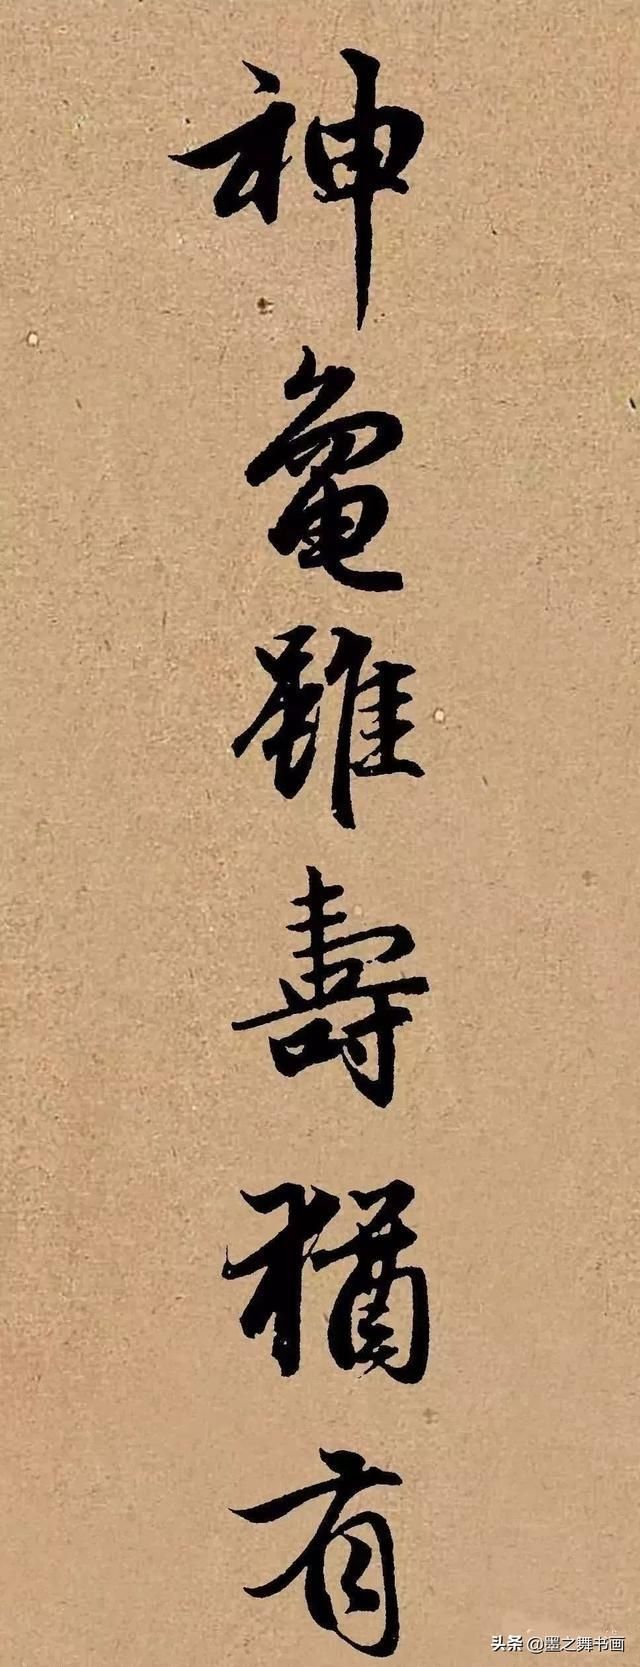 神龜雖壽猶有
头条 @墨之舞书画